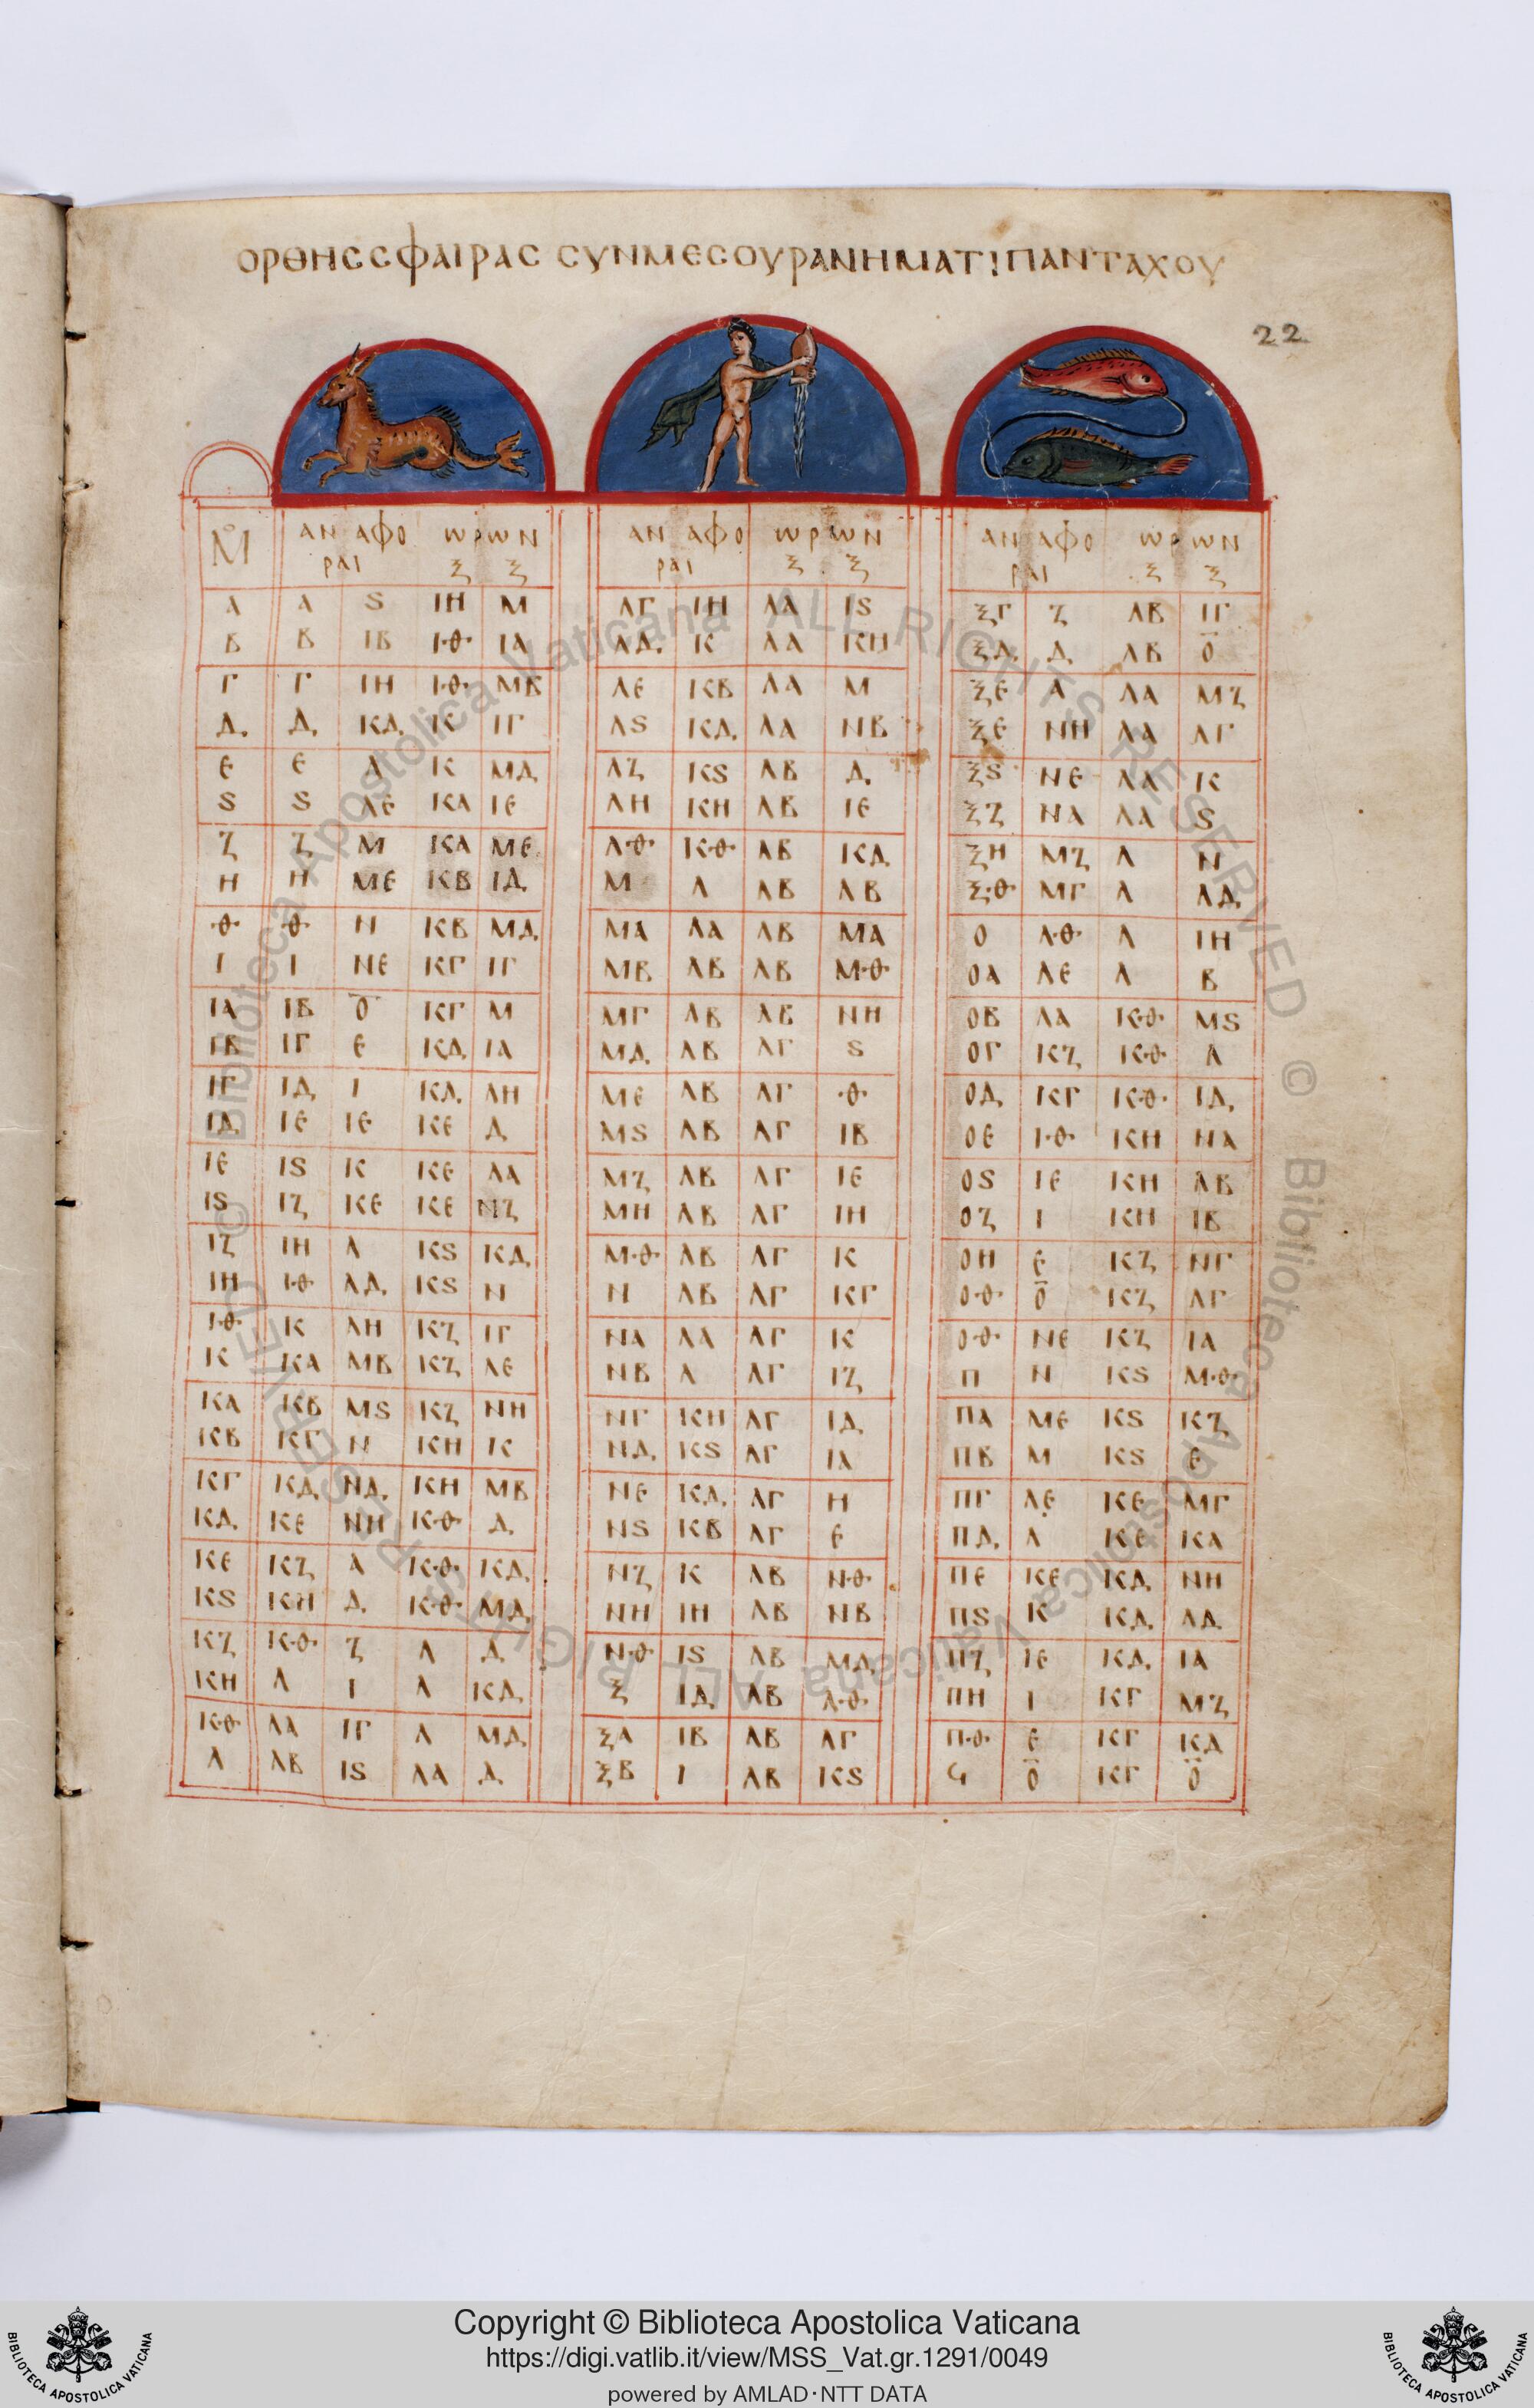 ΟΡΘΗССΦΑΙΡΑС СΥΝΜΕСΟΥΡΑΝΗΜΑΤΙ ΠΑΝΤΑΧΟΥ
22
Μ° ΑΝΑΦΟ ΩΡΩΝ ΑΝΑΦΟ ΩΡΩΝ ΑΝΑΦΟ ΩΡΩΝ
ΡΑΙ Ξ Ξ ΡΑΙ Ξ Ξ ΡΑΙ Ξ Ξ
Α Α S ΙΗ Μ ΛΓ ΙΗ ΛΑ ΙS ΞΓ Ζ ΛΒ ΙΓ
Β Β ΙΒ ΙΘ ΙΑ ΛΔ Κ ΛΑ ΚΗ ΞΔ Δ ΛΒ Ο̅
Γ Γ ΙΗ ΙΘ ΜΒ ΛΕ ΚΒ ΛΑ Μ ΞΕ Α ΛΑ ΜΖ
Δ Δ ΚΔ Κ ΙΓ ΛS ΚΔ ΛΑ ΝΒ ΞΕ ΝΗ ΛΑ ΛΓ
Ε Ε Λ Κ ΜΔ ΛΖ ΚS ΛΒ Δ ΞS ΝΕ ΛΑ Κ
S S ΛΕ ΚΑ ΙΕ ΛΗ ΚΗ ΛΒ ΙΕ ΞΖ ΝΑ ΛΑ S
Ζ Ζ Μ ΚΑ ΜΕ ΛΘ ΚΘ ΛΒ ΚΔ ΞΗ ΜΖ Λ Ν
Η Η ΜΕ ΚΒ ΙΔ Μ Λ ΛΒ ΛΒ ΞΘ ΜΓ Λ ΛΔ
Θ Θ Ν ΚΒ ΜΔ ΜΑ ΛΑ ΛΒ ΜΑ Ο ΛΘ Λ ΙΗ
Ι Ι ΝΕ ΚΓ ΙΓ ΜΒ ΛΒ ΛΒ ΜΘ ΟΑ ΛΕ Λ Β
ΙΑ ΙΒ Ο̅ ΚΓ Μ ΜΓ ΛΒ ΛΒ ΝΗ ΟΒ ΛΑ ΚΘ ΜS
ΙΒ ΙΓ Ε ΚΔ ΙΑ ΜΔ ΛΒ ΛΓ S ΟΓ ΚΖ ΚΘ Λ
ΙΓ ΙΔ Ι ΚΔ ΛΗ ΜΕ ΛΒ ΛΓ Θ ΟΔ ΚΓ ΚΘ ΙΔ
ΙΔ ΙΕ ΙΕ ΚΕ Δ ΜS ΛΒ ΛΓ ΙΒ ΟΕ ΙΘ ΚΗ ΝΑ
ΙΕ ΙS Κ ΚΕ ΛΑ ΜΖ ΛΒ ΛΓ ΙΕ ΟS ΙΕ ΚΗ ΛΒ
ΙS ΙΖ ΚΕ ΚΕ ΝΖ ΜΗ ΛΒ ΛΓ ΙΗ ΟΖ Ι ΚΗ ΙΒ
ΙΖ ΙΗ Λ ΚS ΚΔ ΜΘ ΛΒ ΛΓ Κ ΟΗ Ε ΚΖ ΝΓ
ΙΗ ΙΘ ΛΔ ΚS Ν Ν ΛΒ ΛΓ ΚΓ ΟΘ Ο̅ ΚΖ ΛΓ
ΙΘ Κ ΛΗ ΚΖ ΙΓ ΝΑ ΛΑ ΛΓ Κ ΟΘ ΝΕ ΚΖ ΙΑ
Κ ΚΑ ΜΒ ΚΖ ΛΕ ΝΒ Λ ΛΓ ΙΖ Π Ν ΚS ΜΘ
ΚΑ ΚΒ ΜS ΚΖ ΝΗ ΝΓ ΚΗ ΛΓ ΙΔ ΠΑ ΜΕ ΚS ΚΖ
ΚΒ ΚΓ Ν ΚΗ Κ ΝΔ ΚS ΛΓ ΙΑ ΠΒ Μ ΚS Ε
ΚΓ ΚΔ ΝΔ ΚΗ ΜΒ ΝΕ ΚΔ ΛΓ Η ΠΓ ΛΕ ΚΕ ΜΓ
ΚΔ ΚΕ ΝΗ ΚΘ Δ ΝS ΚΒ ΛΓ Ε ΠΔ Λ ΚΕ ΚΑ
ΚΕ ΚΖ Α ΚΘ ΚΔ ΝΖ Κ ΛΒ ΝΘ ΠΕ ΚΕ ΚΔ ΝΗ
ΚS ΚΗ Δ ΚΘ ΜΔ ΝΗ ΙΗ ΛΒ ΝΒ ΠS Κ ΚΔ ΛΔ
ΚΖ ΚΘ Ζ Λ Δ ΝΘ ΙS ΛΒ ΜΔ ΠΖ ΙΕ ΚΔ ΙΑ
ΚΗ Λ Ι Λ ΚΔ Ξ ΙΔ ΛΒ ΛΘ ΠΗ Ι ΚΓ ΜΖ
ΚΘ ΛΑ ΙΓ Λ ΜΔ ΞΑ ΙΒ ΛΒ ΛΓ ΠΘ Ε ΚΓ ΚΔ
Λ ΛΒ ΙS ΛΑ Δ ΞΒ Ι ΛΒ ΚS Ϟ Ο̅ ΚΓ Ο̅
© Biblioteca Apostolica Vaticana ALL RIGHTS RESERVED © Biblioteca Apostolica Vaticana ALL RIGHTS RESERVED
BIBLIOTECA APOSTOLICA VATICANA
Copyright © Biblioteca Apostolica Vaticana
https://digi.vatlib.it/view/MSS_Vat.gr.1291/0049
powered by AMLAD·NTT DATA
BIBLIOTECA APOSTOLICA VATICANA